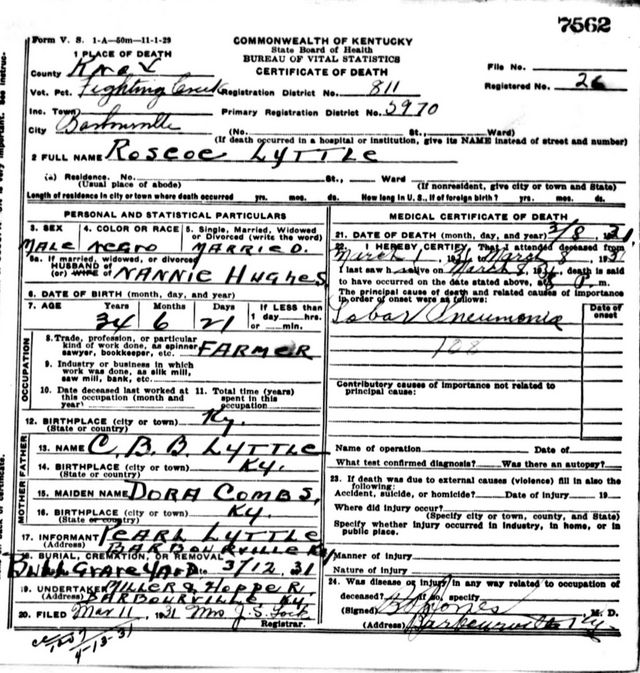 7562
Form V. S. 1-A—50m—11-1-29
COMMONWEALTH OF KENTUCKY
State Board of Health
BUREAU OF VITAL STATISTICS
CERTIFICATE OF DEATH
1 PLACE OF DEATH
County Knox
File No.
Registered No. 26
Vot. Pct. Fighting Creek Registration District No. 811
Inc. Town Primary Registration District No. 5970
City Barbourville (No. St., Ward)
(If death occurred in a hospital or institution, give its NAME instead of street and number)
2 FULL NAME ROSCOE LYTTLE
(a) Residence. No. St., Ward
(Usual place of abode) (If nonresident, give city or town and State)
Length of residence in city or town where death occurred yrs. mos. ds. How long in U. S., if of foreign birth? yrs. mos. ds.
PERSONAL AND STATISTICAL PARTICULARS
3. SEX 4. COLOR OR RACE 5. Single, Married, Widowed or Divorced (write the word)
MALE NEGRO MARRIED.
5a. If married, widowed, or divorced
HUSBAND OF
(or) WIFE OF NANNIE HUGHES
6. DATE OF BIRTH (month, day, and year)
7. AGE Years Months Days If LESS than 1 day hrs. or min.
34 6 21
OCCUPATION
8. Trade, profession, or particular kind of work done, as spinner, sawyer, bookkeeper, etc. FARMER
9. Industry or business in which work was done, as silk mill, saw mill, bank, etc.
10. Date deceased last worked at this occupation (month and year)
11. Total time (years) spent in this occupation
12. BIRTHPLACE (city or town) Ky.
(State or country)
FATHER
13. NAME C. B. B. LYTTLE
14. BIRTHPLACE (city or town) KY.
(State or country)
MOTHER
15. MAIDEN NAME DORA COMBS.
16. BIRTHPLACE (city or town) KY.
(State or country)
17. INFORMANT PEARL LYTTLE
(Address) BARBOURVILLE
18. BURIAL, CREMATION, OR REMOVAL
GRAVEYARD 3/12, 31
19. UNDERTAKER MILLER & HOPPER.
(Address) BARBOURVILLE KY
20. FILED Mar 11, 1931 Mrs J. S. Registrar.
4-13-31
MEDICAL CERTIFICATE OF DEATH
21. DATE OF DEATH (month, day, and year) 3/8, 1931
22. I HEREBY CERTIFY, That I attended deceased from
March 1 1931 to March 8, 1931
I last saw h alive on March 8, 1931, death is said
to have occurred on the date stated above, at m.
The principal cause of death and related causes of importance in order of onset were as follows:
Date of onset
Lobar Pneumonia
108
Contributory causes of importance not related to principal cause:
Name of operation Date of
What test confirmed diagnosis? Was there an autopsy?
23. If death was due to external causes (violence) fill in also the following:
Accident, suicide, or homicide? Date of injury 19
Where did injury occur?
(Specify city or town, county, and State)
Specify whether injury occurred in industry, in home, or in public place.
Manner of injury
Nature of injury
24. Was disease or injury in any way related to occupation of deceased? If so, specify
(Signed) Jones M. D.
(Address) Barbourville Ky.